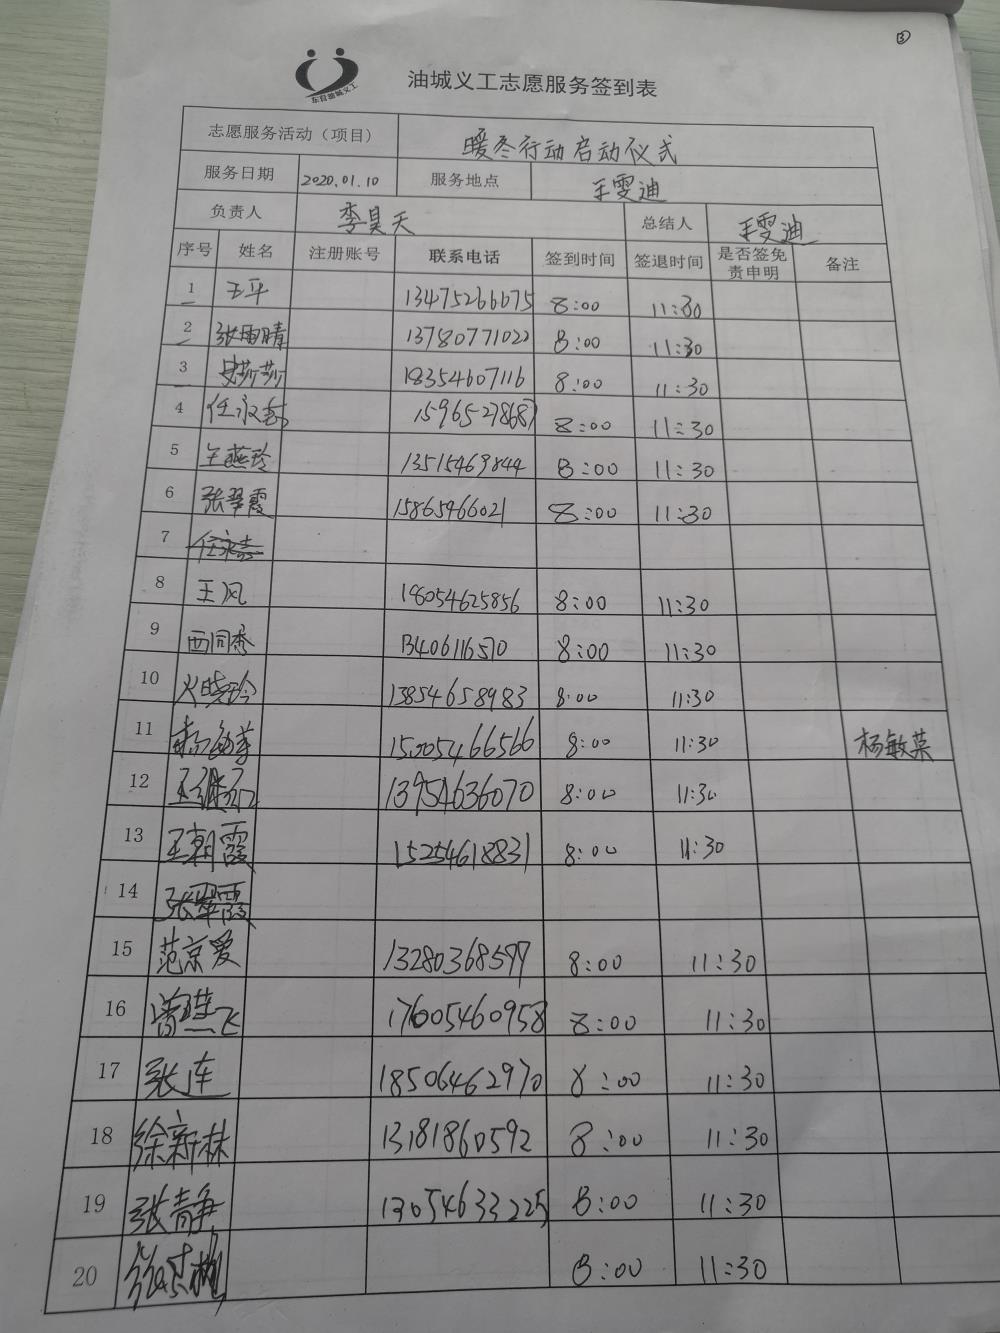 3
东营油城义工
油城义工志愿服务签到表
志愿服务活动（项目） 暖冬行动启动仪式
服务日期 2020.01.10 服务地点 王雯迪
负责人 李昊天 总结人 王雯迪
序号 姓名 注册账号 联系电话 签到时间 签退时间 是否签免责申明 备注
1 王平 13475266675 8:00 11:30
2 张雨晴 13780771022 8:00 11:30
3 史莎莎 18354607116 8:00 11:30
4 任永志 15965278687 8:00 11:30
5 王燕玲 13515469844 8:00 11:30
6 张翠霞 15865466021 8:00 11:30
7
8 王凤 18054625856 8:00 11:30
9 西同秀 13406116570 8:00 11:30
10 火晓玲 13854658983 8:00 11:30
11 杨敏英 15005466566 8:00 11:30 杨敏英
12 13954636070 8:00 11:30
13 王朝霞 15254618831 8:00 11:30
14 张翠霞
15 范京爱 13280368577 8:00 11:30
16 飞 17605460958 8:00 11:30
17 张连 18506462970 8:00 11:30
18 徐新林 13181860592 8:00 11:30
19 张静 13054633225 8:00 11:30
20 8:00 11:30